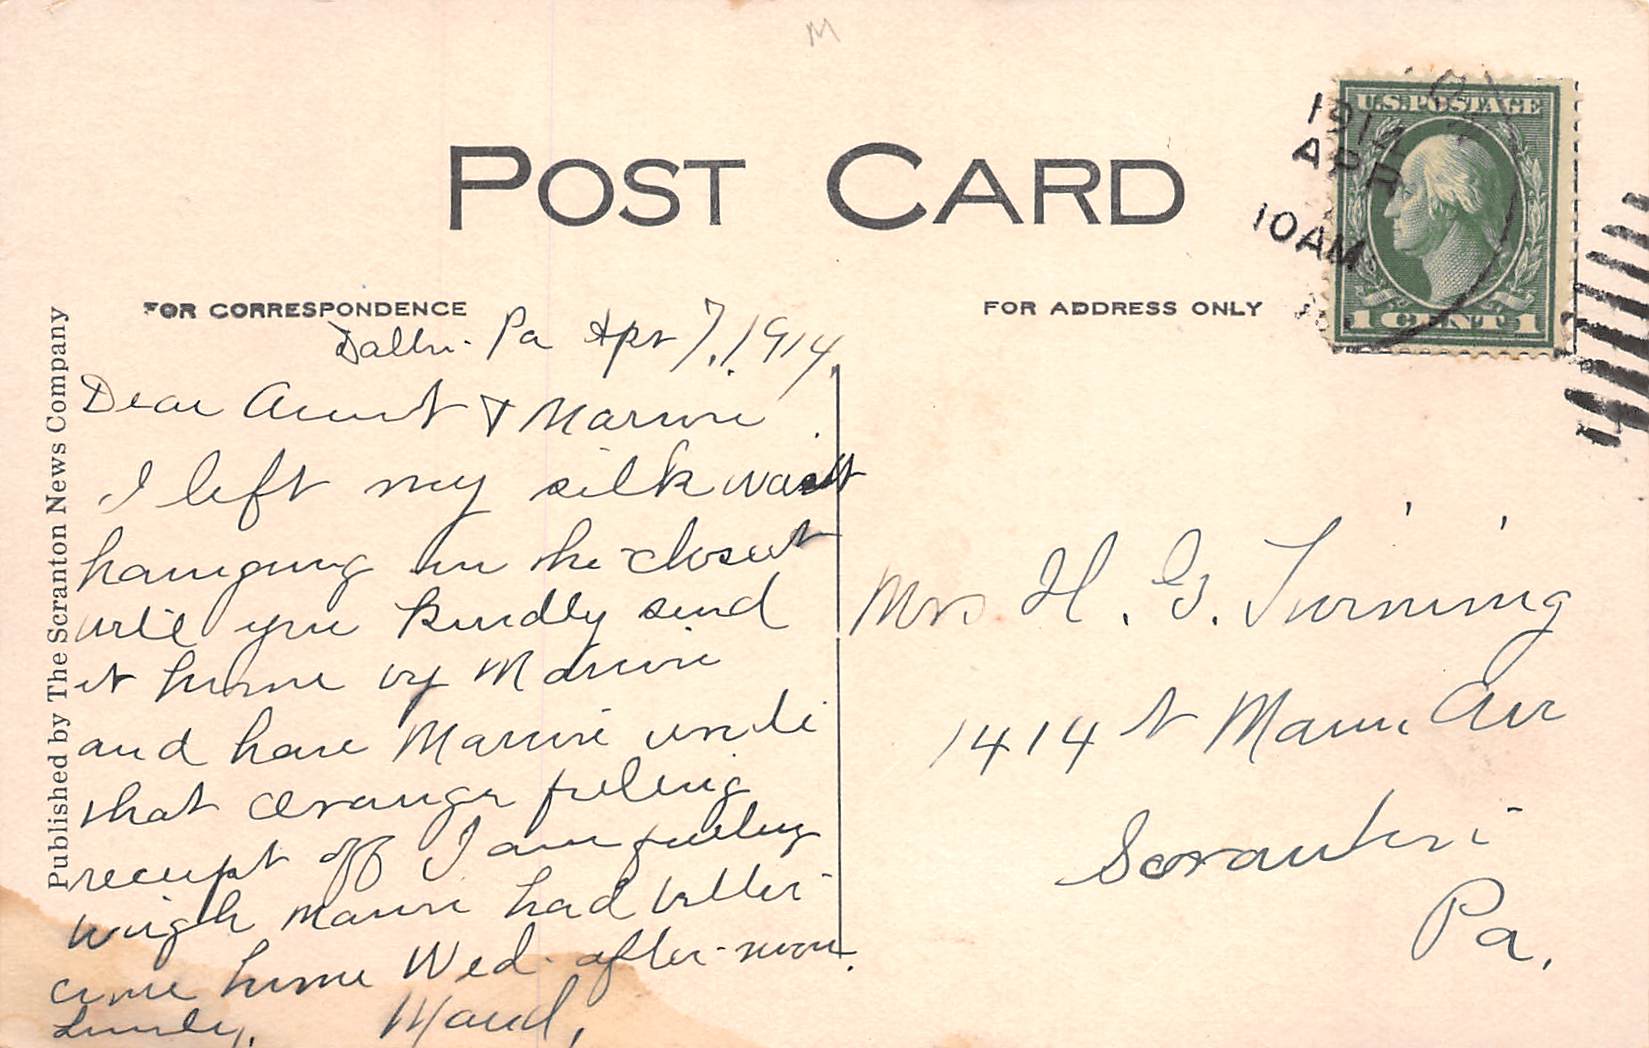 M
POST CARD
U.S. POSTAGE
1 CENT 1
1914
APR
10 AM
FOR CORRESPONDENCE
FOR ADDRESS ONLY
Published by The Scranton News Company
Pa Apr 7, 1914,
Dear Aunt & Marvin
I left my silk waist
hanging in the closet
will you kindly send
it home by Marvin
and have Marvin write
that Orange filling
receipt off I am feeling
Marvin had better
come home Wed. after-noon.
Maud,
Mrs H. G. Turning
1414 N Main Ave
Scranton
Pa.